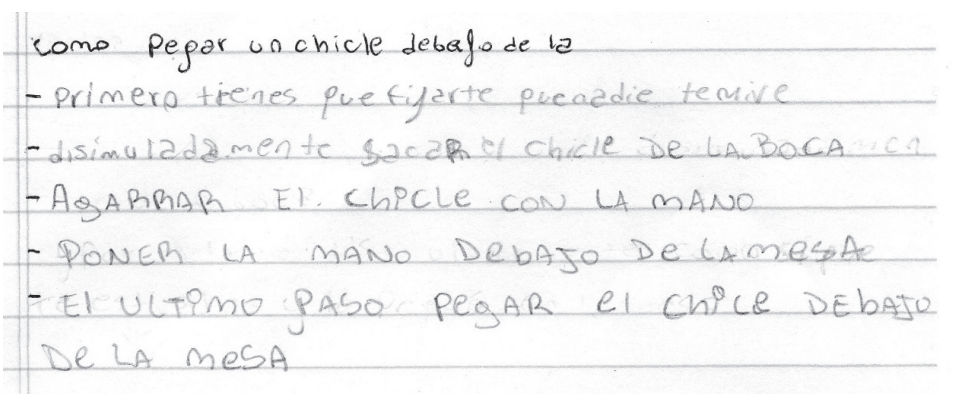 como pegar un chicle debajo de la
- primero tienes que fijarte que nadie te mire
- disimuladamente sacar el chicle DE LA BOCA en
- AgARRAR El. ChiCLe CON LA mANO
- PONER LA MANO DebAJO De LA mesA
- El ULTimO PASO PegAR el ChiCe DEbAJO
De LA meSA